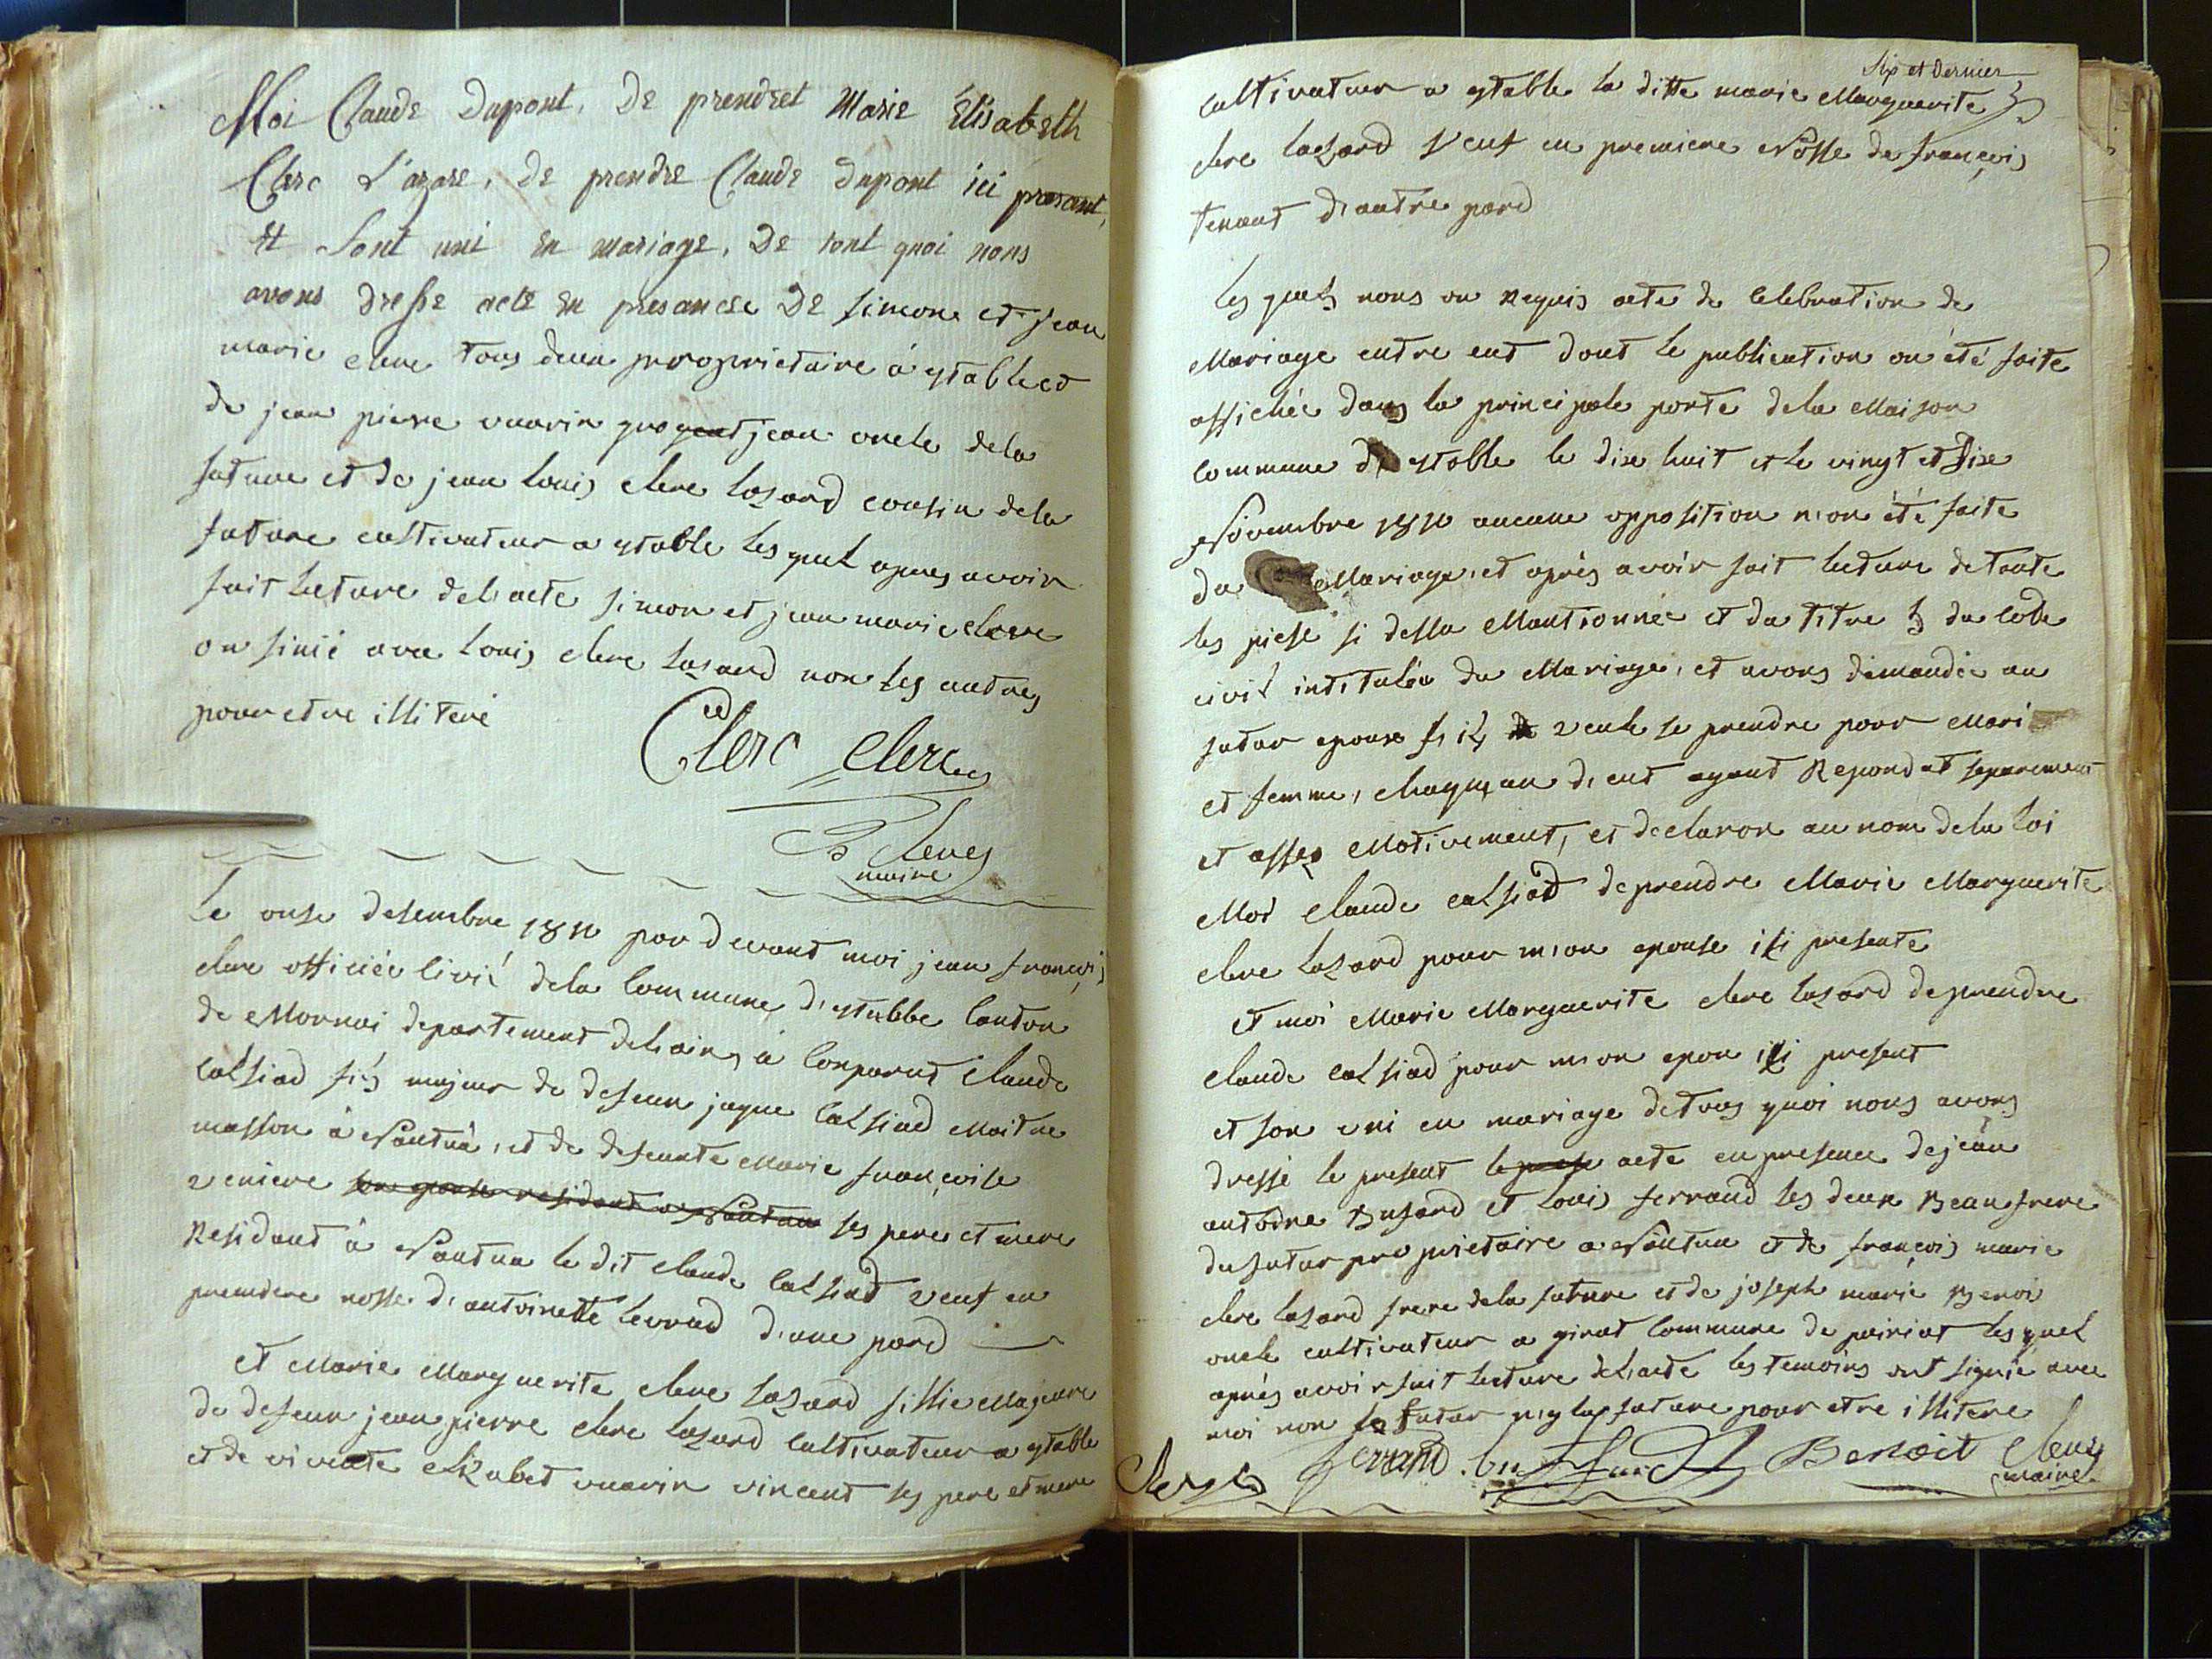 Moi Claude Dupont, De prendret Marie Élisabeth
Clerc L'azare, de prendre Claude dupont ici presant,
Et Sont uni en mariage, De tout quoi nous
avons dresse acte en presancee De simone et jean
marie clerc tous deux proprietaire a ystable et
de jean pierre vuarin jean oncle de la
future et de jean louis clerc lazard cousin de la
future cultivateur a ystable les quel apres avoir
fait lecture del acte simon et jean marie clerc
on sinié avec louis clerc lazard non les autres
pour etre illiteré
Clerc Clerc
Clerc
maire
Le onse desembre 1810 par devant moi jean françois
clerc officiée civil dela Commune d'ystable Canton
de Mornai departement del ain, à Conparut Claude
Calsiad fils majeur de defeun jaque Calsiad Maitre
masson à Nantua, et de defeunte Marie françoise
veniere ses pere et mere
Residant à Nantua le dit Claude Calsiad veuf en
premiere nosse d'antoinette levrad d'une pard
et Marie Marguerite clerc lazard fillie Majeure
de defeun jean pierre clerc lazard Cultivateur a ystable
et de vivente Elizabet vuarin vincent ses pere et mere
Six et Dernier
Cultivateur a ystable la ditte marie Marguerite
clerc lazard veuf en premiere Nosse de françois
tenant d'autre pard
Les quels nous on Requis acte de Celebration de
Mariage entre eut dont le publication on été faite
affichée dans la principale porte dela Maison
Commune d ystable le dixe huit et le vingt et Sixe
Novembre 1810 aucune opposition n'on été faite
du Mariage, et après avoir fait lecture de toute
les piese si dessu Mantionnée et du titre 5 du Code
civil intitulée du Mariage, et avons demandée au
futur epouse s'ils veule se prendre pour Mari
et femme, chaqun d'eut ayant Repondut separement
et affer Mativement, et declaron au nom dela loi
Moi Claude Calsiad de prendre Marie Marguerite
clerc lazard pour m'on epouse isi presente
et moi Marie Marguerite clerc lazard de prendre
Claude Calsiad pour m'on epou isi present
et son uni en mariage de tous quoi nous avons
dressé le present acte en presence de jean
antoine Busard et louis ferraud les deux Beaufrere
du futur proprietaire a Nantua et de françois marie
clerc lazard frere dela future et de joseph marie Benoi
oncle cultivateur a girat Commune de peiriat les quel
après avoir fait lecture del acte les temoins ont signée avec
moi non le futur ny la future pour etre illitere
Clerc Ferraud Benoit Clerc
maire